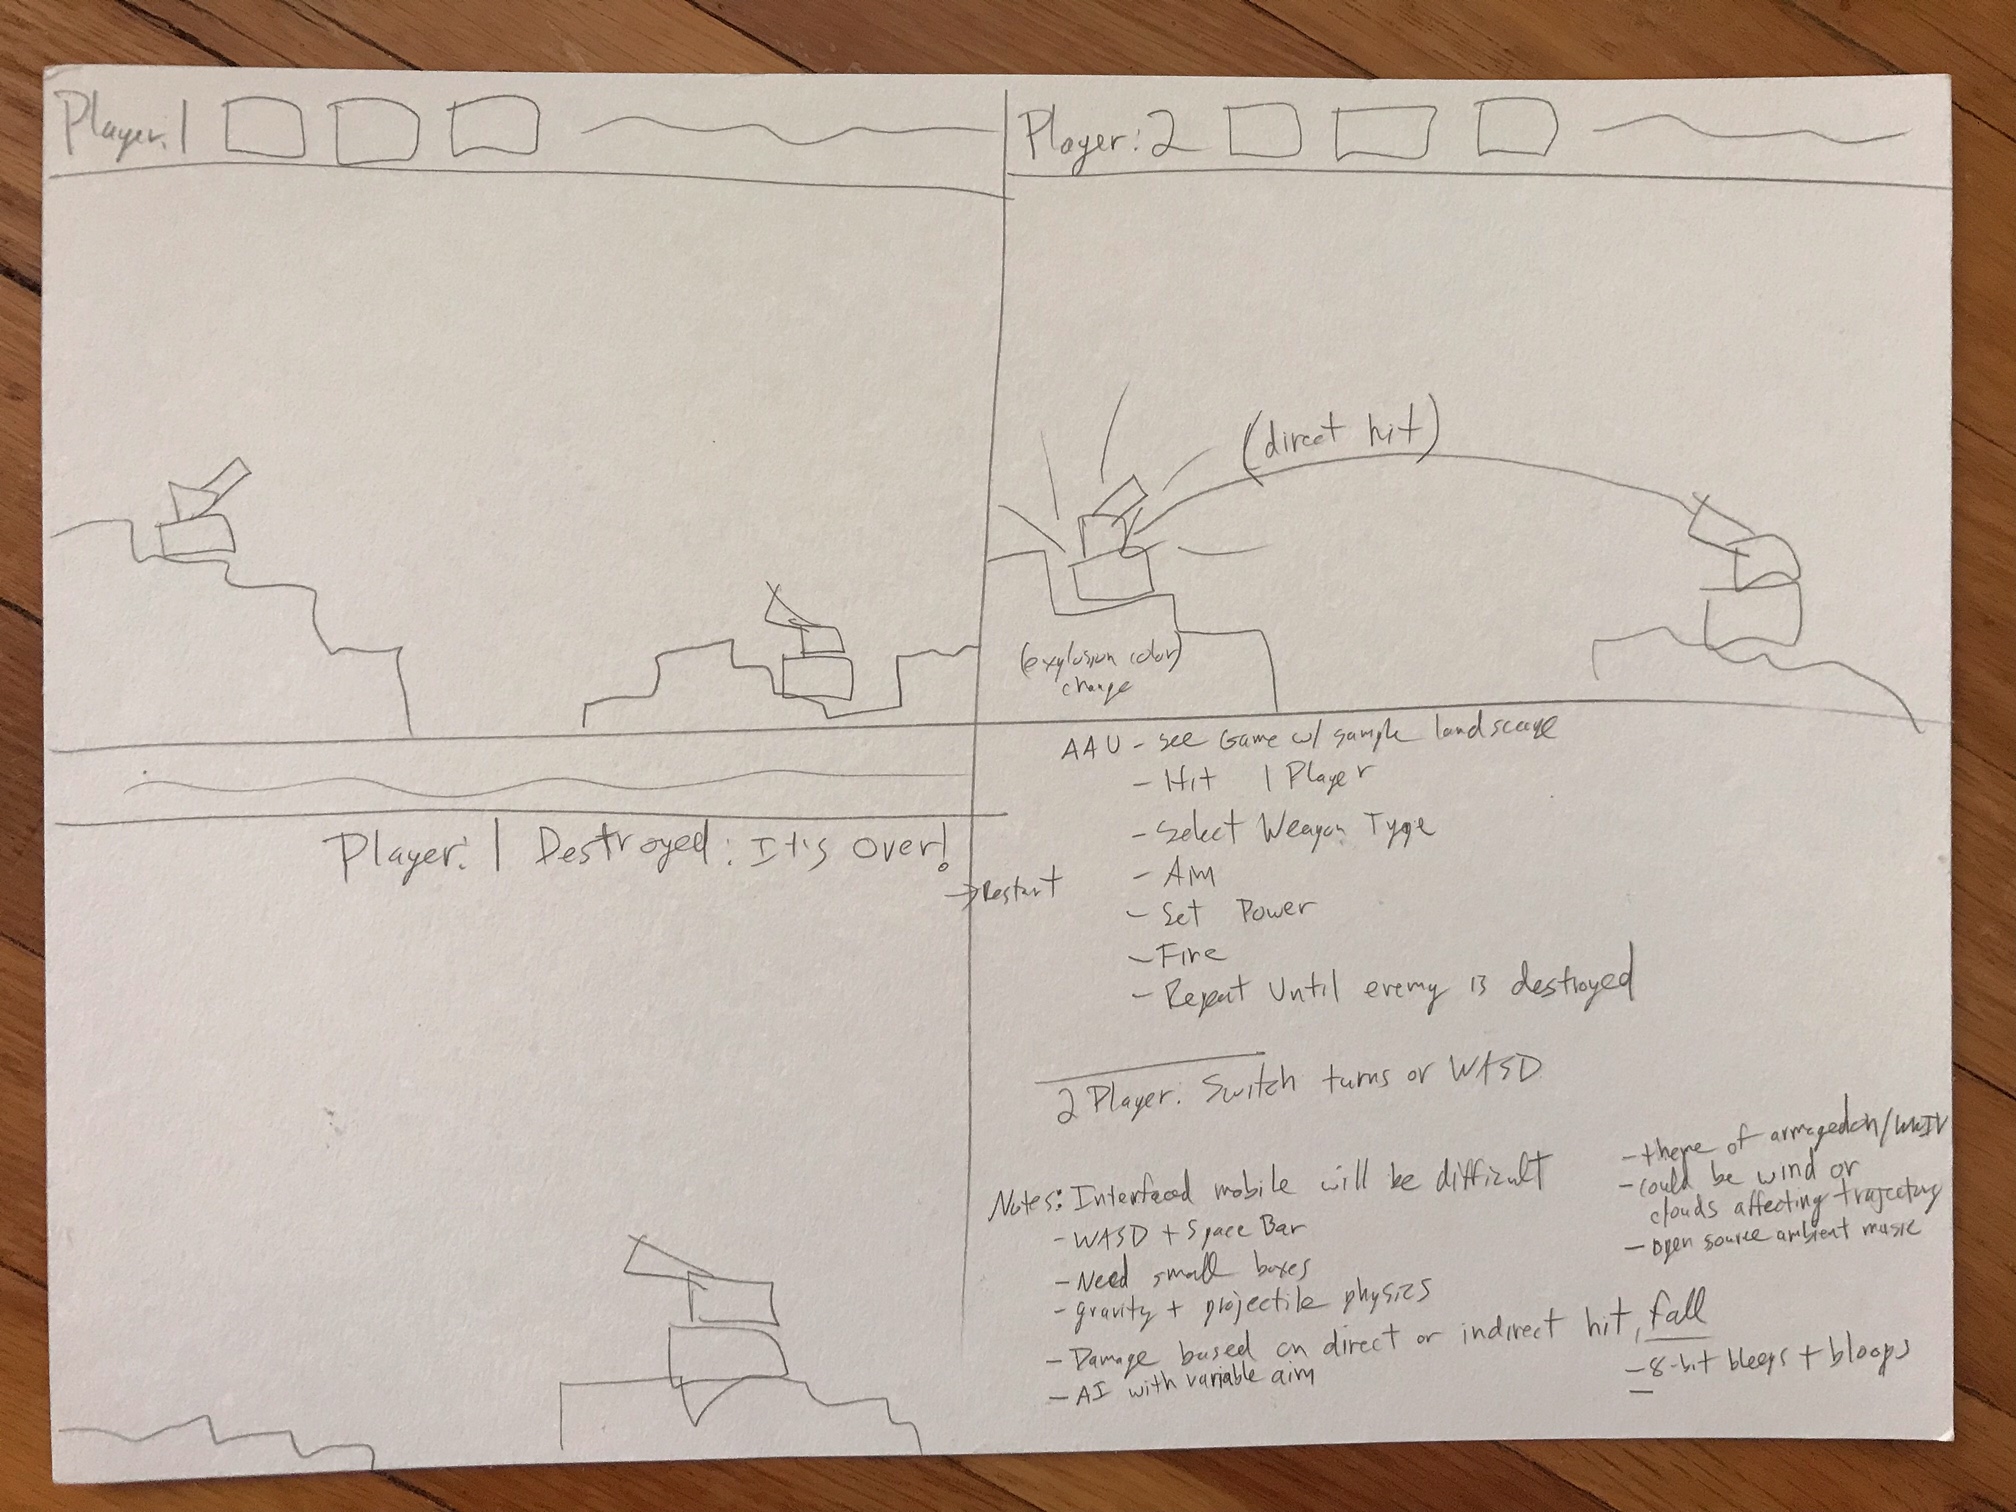 Player: 1
Player: 2
(direct hit)
(explosion color)
change
Player: 1 Destroyed: It's over!
→ Restart
AAU - see Game w/ sample landscape
- Hit 1 Player
- Select Weapon Type
- Aim
- Set Power
- Fire
- Repeat Until enemy is destroyed
2 Player: Switch turns or WASD
Notes: Interfaced mobile will be difficult
- WASD + Space Bar
- Need small boxes
- gravity + projectile physics
- Damage based on direct or indirect hit, fall
- AI with variable aim
- theme of armagedon/
- could be wind or
clouds affecting trajectory
- open source ambient music
- 8-bit bleeps + bloops
-